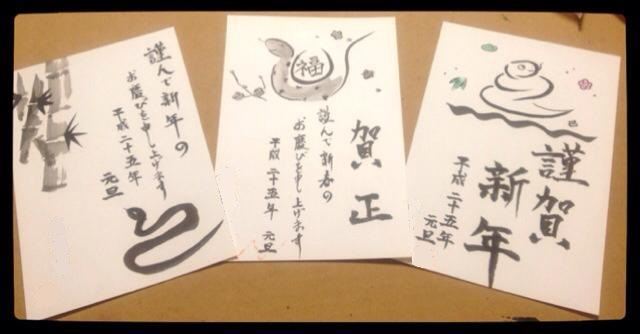 謹んで新年の
お慶びを申し上げます
平成二十五年
元旦
福
賀正
謹んで新春の
お慶びを申し上げます
平成二十五年
元旦
謹賀
新年
平成二十五年
元旦